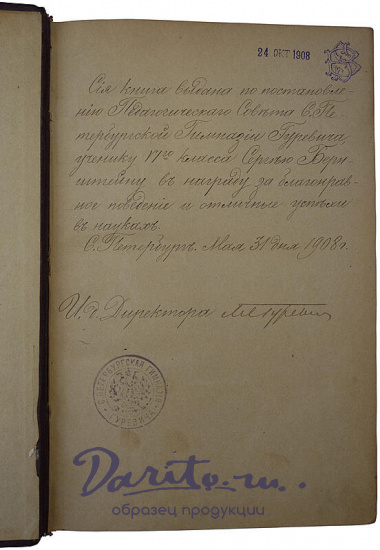 24 ОКТ 1908
Сія книга выдана по постановле-
нію Педагогическаго Совѣта С. Пе-
тербургской Гимназіи Гуревича,
ученику VIго класса Сергѣю Берн-
штейну въ награду за благонрав-
ное поведеніе и отличные успѣхи
въ наукахъ.
С. Петербургъ. Мая 31 дня 1908 г.
И. д. Директора Гуревич
С.ПЕТЕРБУРГСКАЯ ГИМНАЗІЯ ГУРЕВИЧА
Darito.ru.
образец продукции